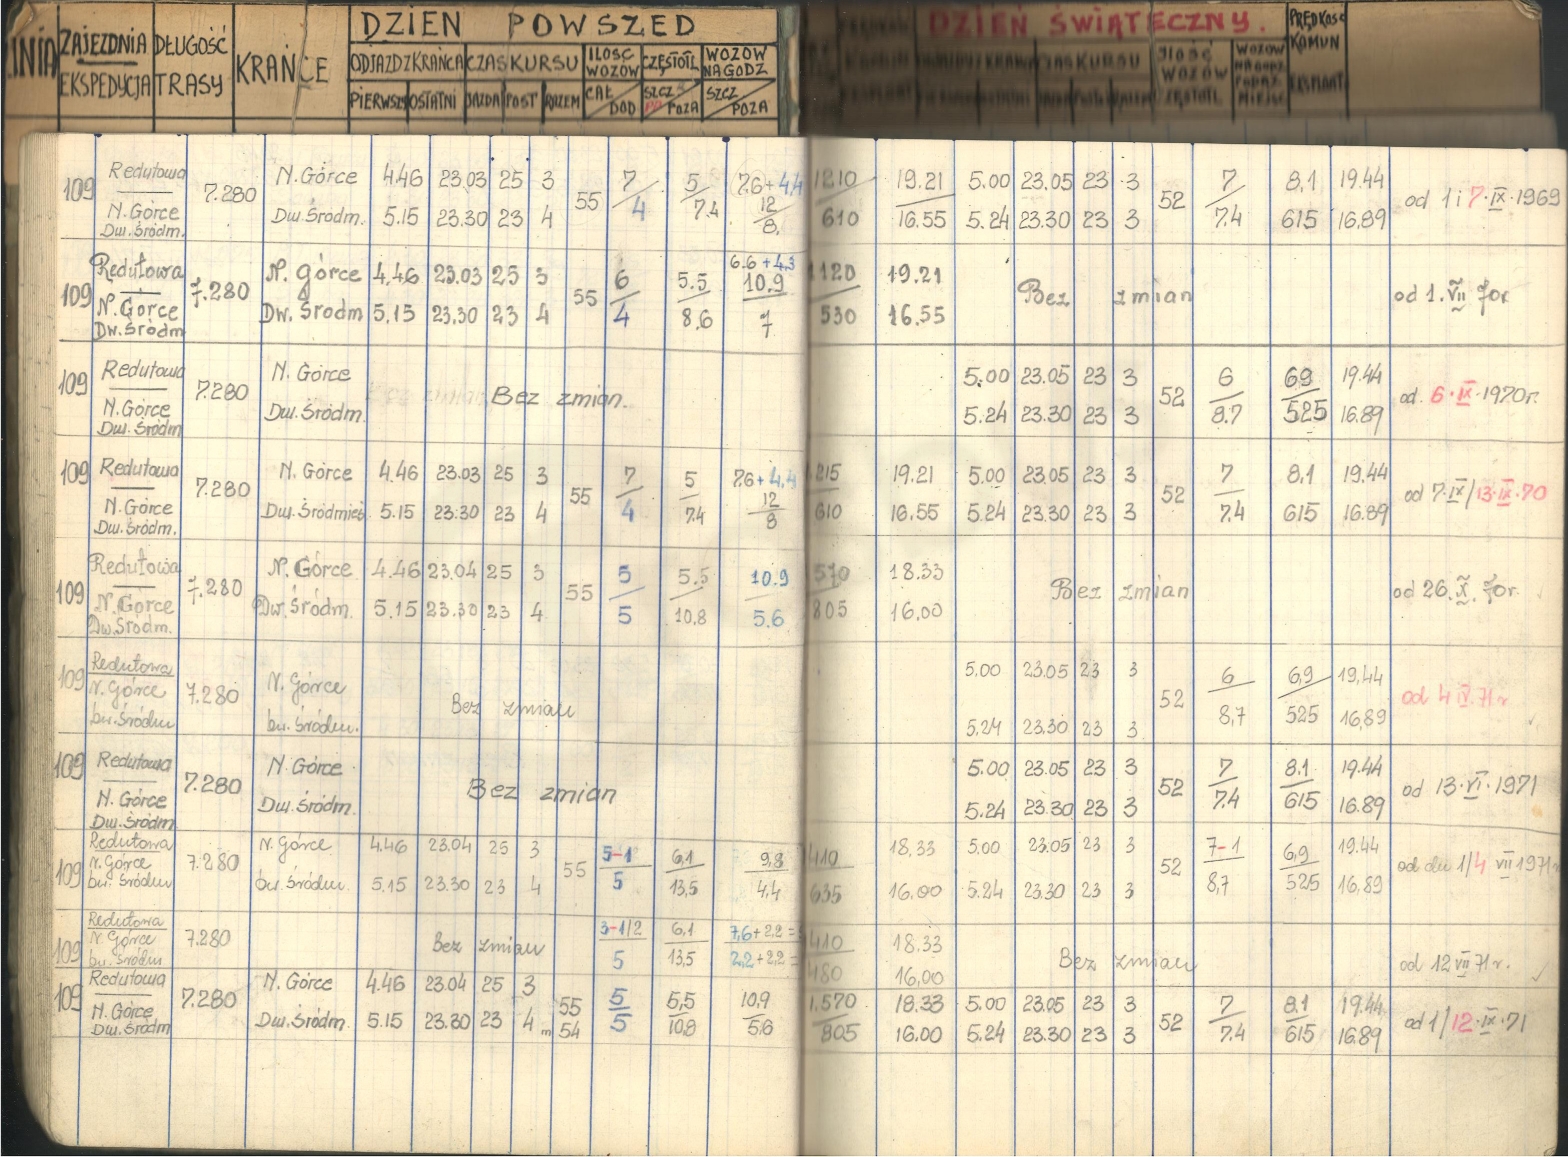 DZIEŃ POWSZED
DZIEŃ ŚWIĄTECZNY.
ZAJEZDNIA
EKSPEDYCJA
DŁUGOŚĆ
TRASY
KRAŃCE
ODJAZD Z KRAŃCA
CZAS KURSU
ILOSC
WOZOW
CZĘSTOTL
WOZOW
NA GODZ
PRĘDKOSC
KOMUN
EKSPLOAT
PIERWSZY OSTATNI JAZDA POST RAZEM CAŁ DOD SZCZ POZA SZCZ POZA
109 Redutowa N. Górce 4.46 23.03 25 3 7 5 7.6+4.4 1210 19.21 5.00 23.05 23 3 7 8,1 19.44
7.280 55 12 52 od 1 i 7.IX.1969
N. Górce Dw. Śródm. 5.15 23.30 23 4 4 7.4 8. 610 16.55 5.24 23.30 23 3 7.4 615 16.89
Dw. Śródm.
Redutowa N. Górce 4.46 23.03 25 3 6 5.5 6.6+4.3 1120 19.21
109 7.280 55 10,9 Bez zmian od 1. VII 70r
N. Górce Dw. Śródm 5.15 23.30 23 4 4 8,6 7 530 16.55
Dw. Śródm
Redutowa N. Górce 5.00 23.05 23 3 6 69 19.44
109 7.280 Bez zmian. 52 od. 6.IX.1970r.
N. Górce Dw. Śródm. 5.24 23.30 23 3 8.7 525 16.89
Dw. Śródm
109 Redutowa N. Górce 4.46 23.03 25 3 7 5 7.6+4,4 1215 19.21 5.00 23.05 23 3 7 8,1 19.44
7.280 55 12 52 od 7.IX/13.IX.70
N. Górce Dw. Śródmieś. 5.15 23.30 23 4 4 7.4 8 610 16.55 5.24 23.30 23 3 7.4 615 16.89
Dw. Śródm.
Redutowa N. Górce 4.46 23.04 25 3 5 5.5 10.9 570 18.33
109 7.280 55 Bez zmian od 26.X.70r.
N. Górce Dw. Śródm. 5.15 23.30 23 4 5 10,8 5.6 805 16.00
Dw. Śródm.
Redutowa N. Górce 5.00 23.05 23 3 6 6,9 19,44
109 7.280 Bez zmian 52 od 4 IV.71r
N. Górce Dw. Śródm. 5.24 23.30 23 3 8,7 525 16,89
Dw. Śródm
109 Redutowa N. Górce 5.00 23.05 23 3 7 8.1 19.44
7.280 Bez zmian 52 od 13.VI.1971
N. Górce Dw. Śródm. 5.24 23.30 23 3 7.4 615 16.89
Dw. Śródm
Redutowa N. Górce 4.46 23.04 25 3 5-1 6,1 9,8 410 18,33 5.00 23.05 23 3 7-1 6,9 19.44
109 N. Górce 7.280 55 52 od dn 1/4 VII 1971r
Dw. Śródm Dw. Śródm. 5.15 23.30 23 4 5 13,5 4,4 635 16.00 5.24 23.30 23 3 8,7 525 16,89
Redutowa 3-1/2 6,1 7,6+2,2= 410 18.33
109 N. Górce 7.280 Bez zmian Bez zmian od 12 VII 71r.
Dw. Śródm 5 13,5 2,2+2,2= 480 16,00
Redutowa N. Górce 4.46 23.04 25 3 55 5 5,5 10,9 1.570 18.33 5.00 23.05 23 3 7 8.1 19.44
109 7.280 52 od 1/12.IX.71
N. Górce Dw. Śródm. 5.15 23.30 23 4 m 54 5 10,8 5,6 805 16.00 5.24 23.30 23 3 7.4 615 16.89
Dw. Śródm